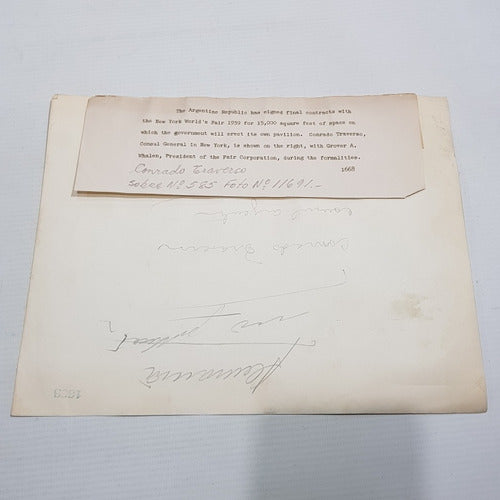 The Argentine Republic has signed final contracts with
the New York World's Fair 1939 for 15,000 square feet of space on
which the government will erect its own pavilion. Conrado Traverso,
Consul General in New York, is shown on the right, with Grover A.
Whalen, President of the Fair Corporation, during the formalities.
1668
Conrado Traverso
Sobre Nº 585 Foto Nº 11691.-
Conrado
1668